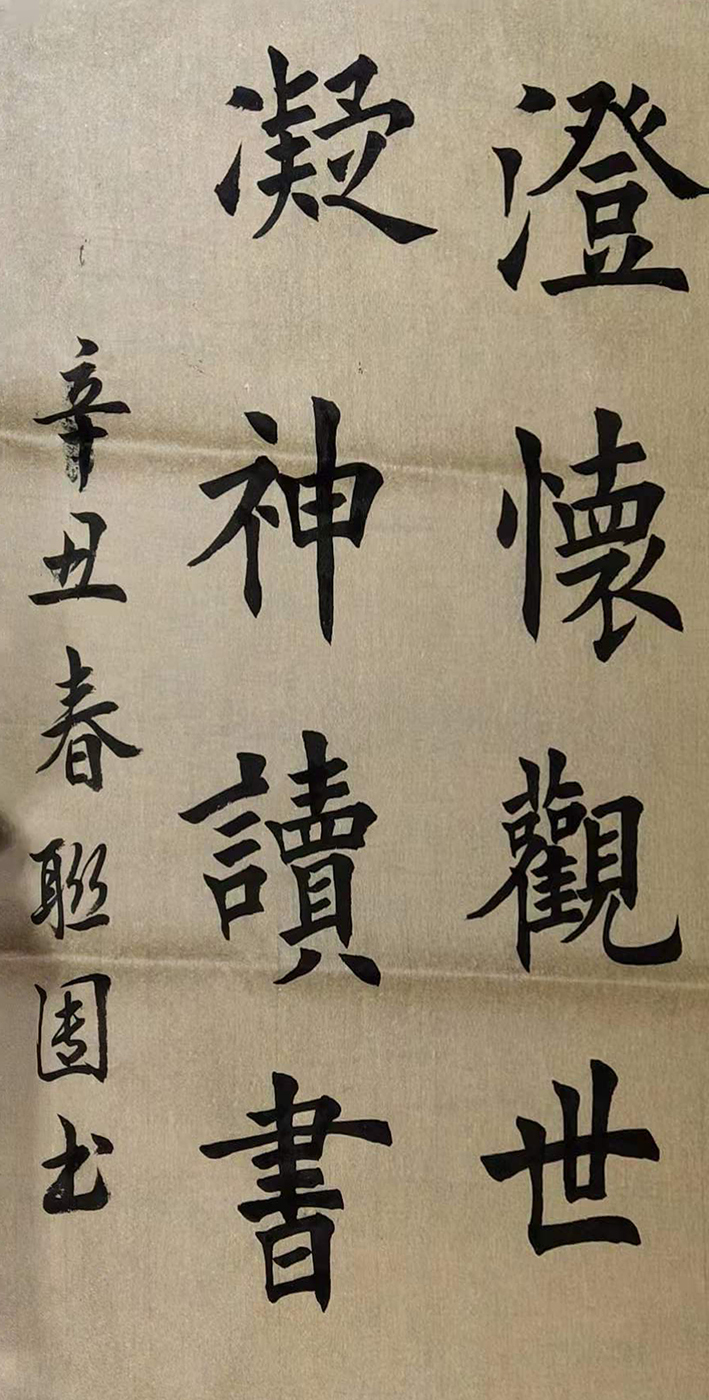 澄懷觀世
凝神讀書
辛丑春聯園书